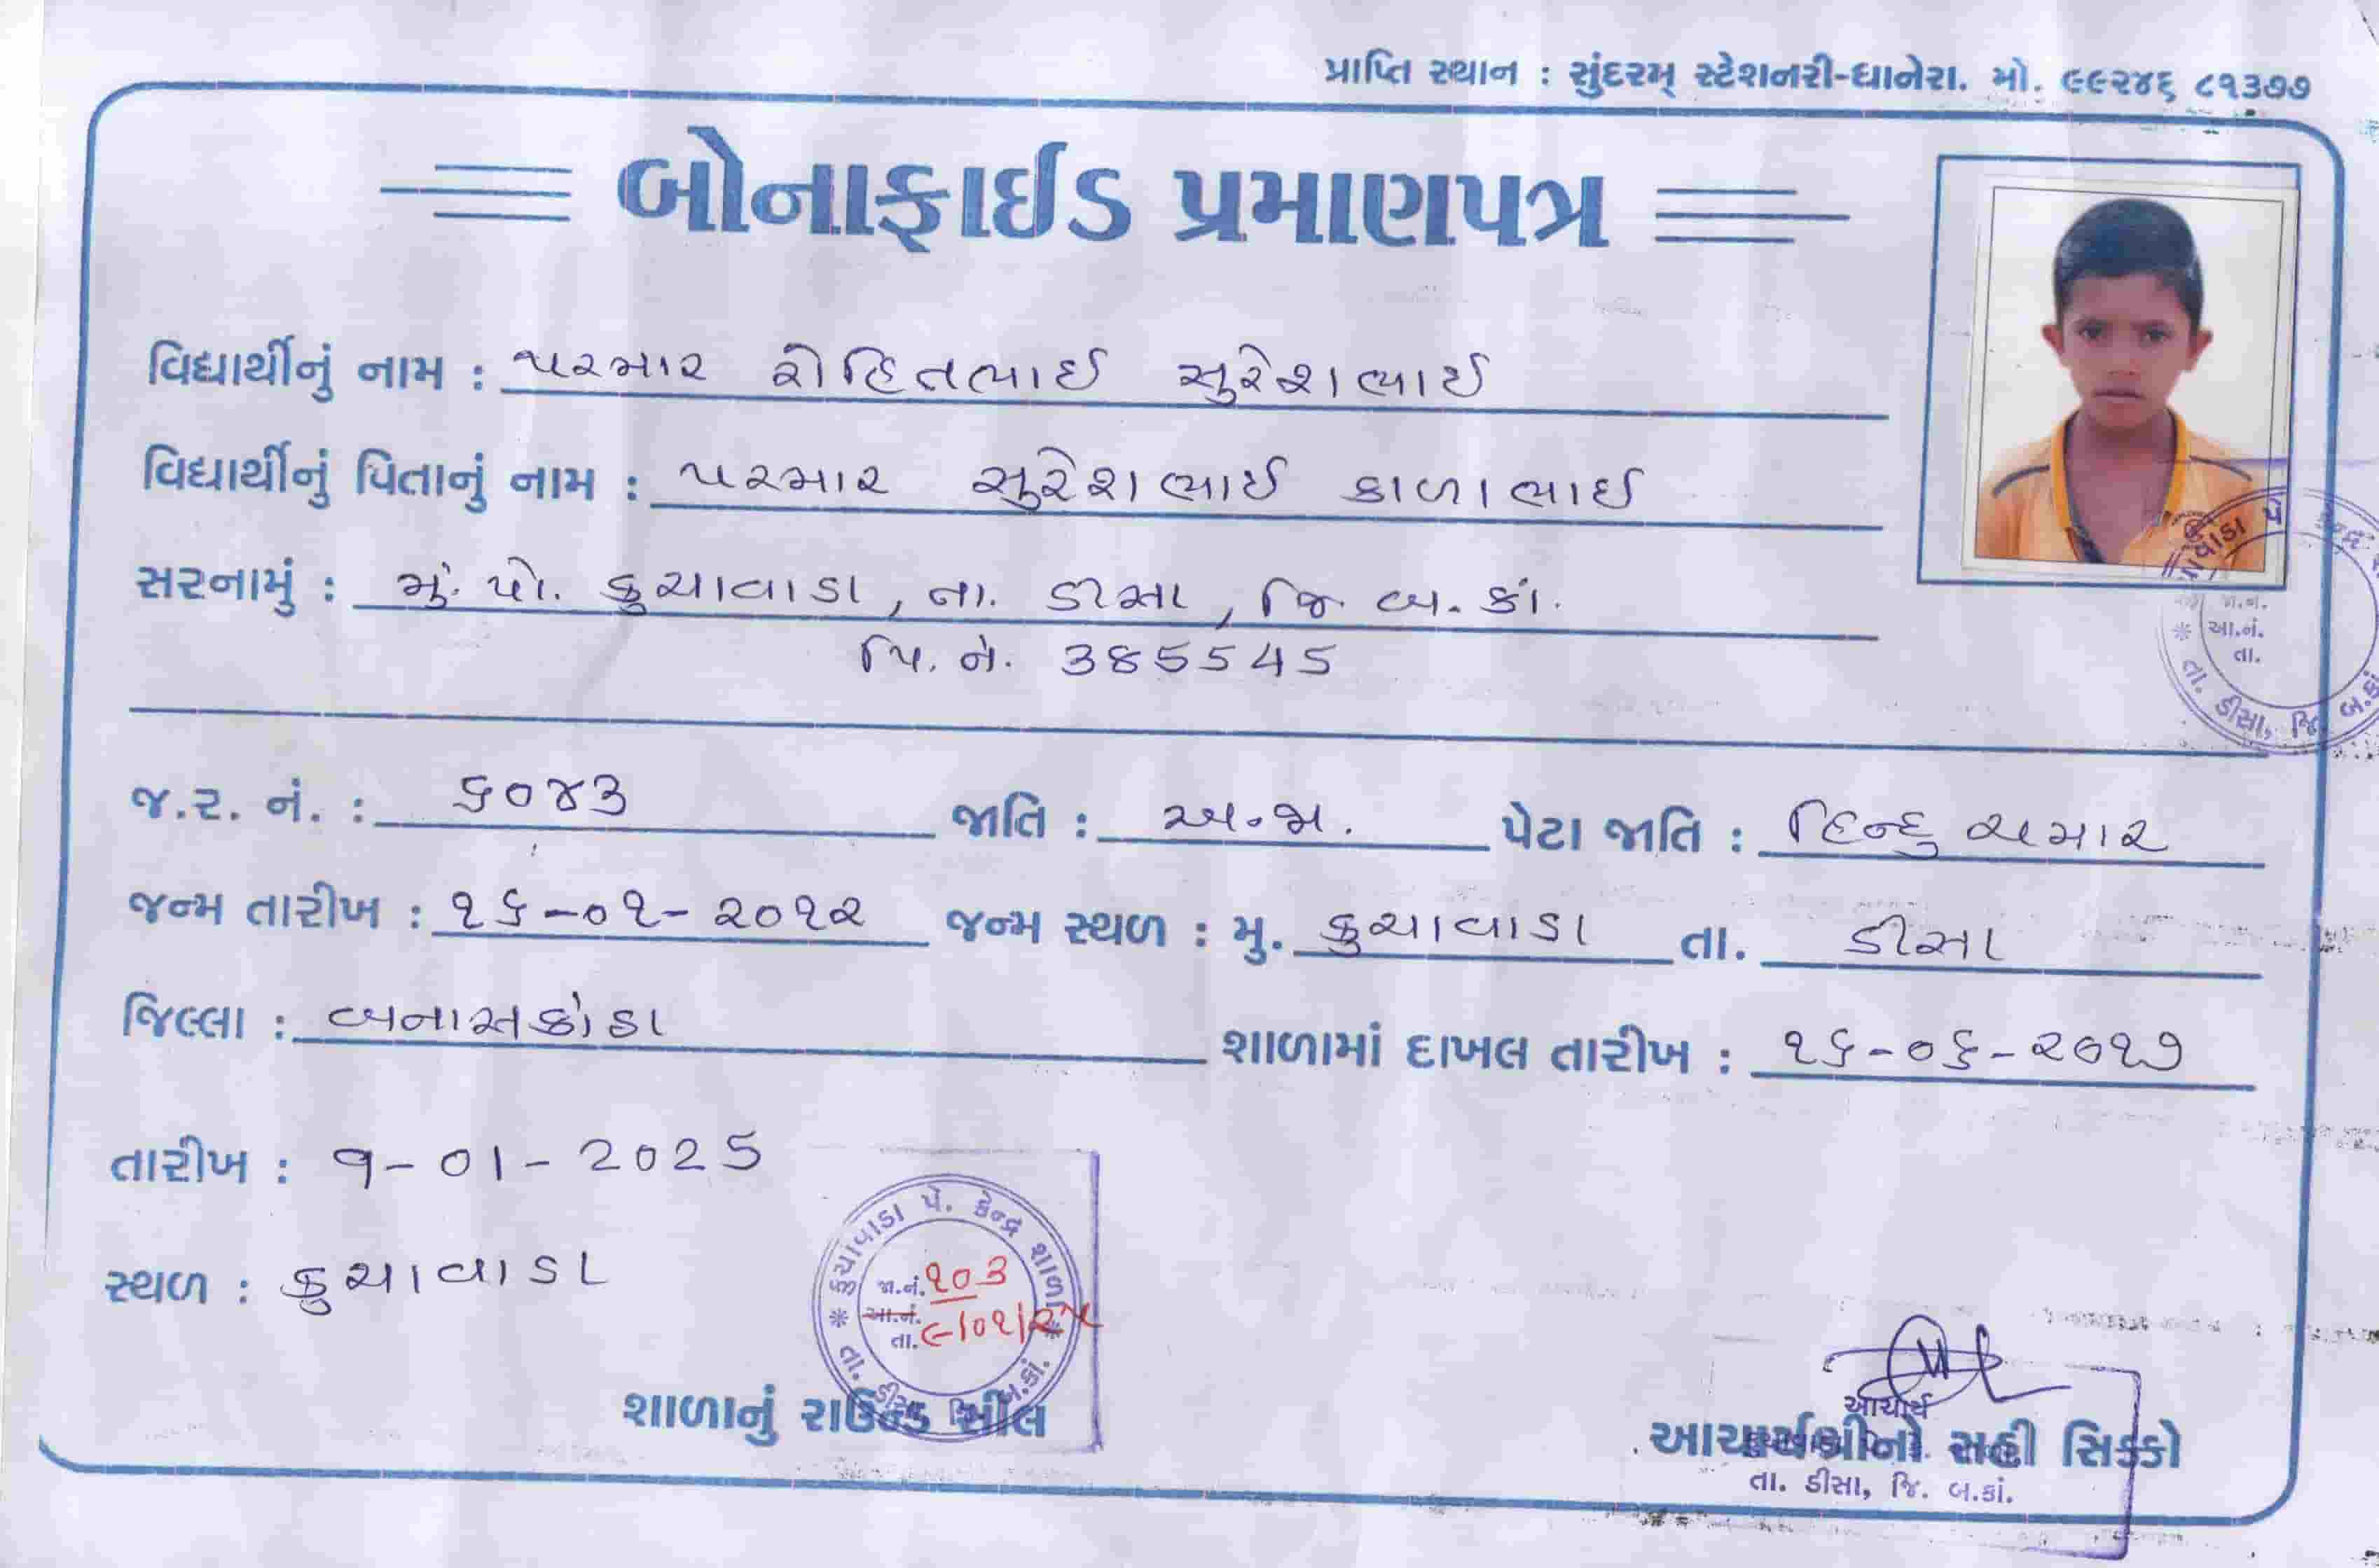 પ્રાપ્તિ સ્થાન : સુંદરમ્ સ્ટેશનરી-ધાનેરા. મો. ૯૯૨૪૬ ૮૧૩૭૭
બોનાફાઈડ પ્રમાણપત્ર
વિદ્યાર્થીનું નામ : પરમાર રોહિતભાઈ સુરેશભાઈ
વિદ્યાર્થીનું પિતાનું નામ : પરમાર સુરેશભાઈ કાળાભાઈ
સરનામું : મું. પો. કુચાવાડા, તા. ડીસા, જિ. બ.કાં.
પિ. નં. 385545
વાડા પે કેન્દ્ર
જા.નં.
આ.નં.
તા.
તા. ડીસા, જિ. બ.કાં
જ.ર. નં. : ૬૦૪૩ જાતિ : અ.જા. પેટા જાતિ : હિન્દુ ચમાર
જન્મ તારીખ : ૧૬-૦૧-૨૦૧૨ જન્મ સ્થળ : મુ. કુચાવાડા તા. ડીસા
જિલ્લા : બનાસકાંઠા શાળામાં દાખલ તારીખ : ૧૬-૦૬-૨૦૧૭
તારીખ : ૧-01-2025
કુચાવાડા પે. કેન્દ્ર શાળા
સ્થળ : કુચાવાડા
જા.નં. ૧૦૩
આ.નં.
તા. ૯/૦૧/૨૫
તા. ડીસા, જિ. બ.કાં.
શાળાનું રાઉન્ડ સીલ
આચાર્ય
આચાર્યશ્રીનો સહી સિક્કો
તા. ડીસા, જિ. બ.કાં.